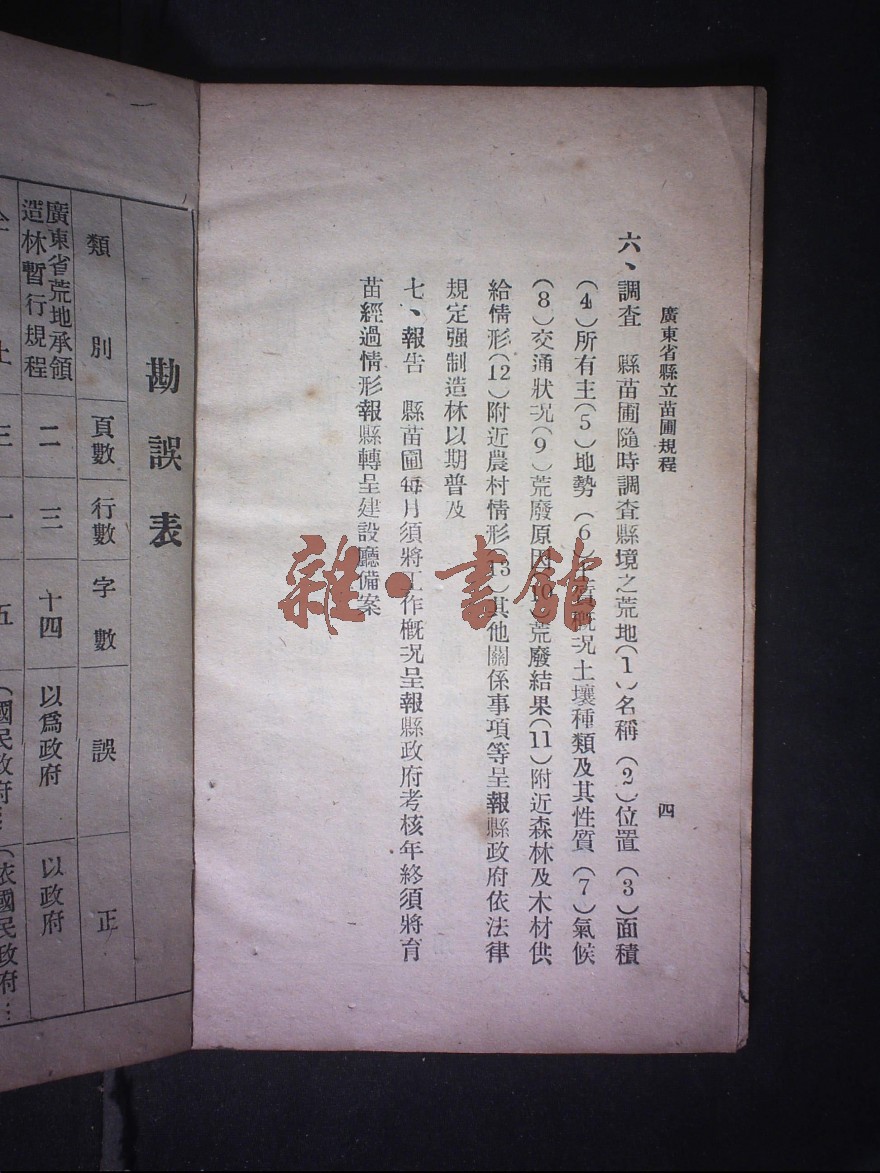 廣東省縣立苗圃規程
四
六、調查　縣苗圃隨時調查縣境之荒地(1)名稱(2)位置(3)面積
(4)所有主(5)地勢(6)質概况土壤種類及其性質(7)氣候
(8)交通狀况(9)荒廢原因(10)荒廢結果(11)附近森林及木材供
給情形(12)附近農村情形(13)其他關係事項等呈報縣政府依法律
規定强制造林以期普及
七、報告　縣苗圃每月須將工作概况呈報縣政府考核年終須將育
苗經過情形報縣轉呈建設廳備案
雜·書館
勘誤表
類別　頁數　行數　字數　誤　正
廣東省荒地承領造林暫行規程　二　三　十四　以爲政府　以政府
仝上　三　一　五　(國民政府…　(依國民政府…